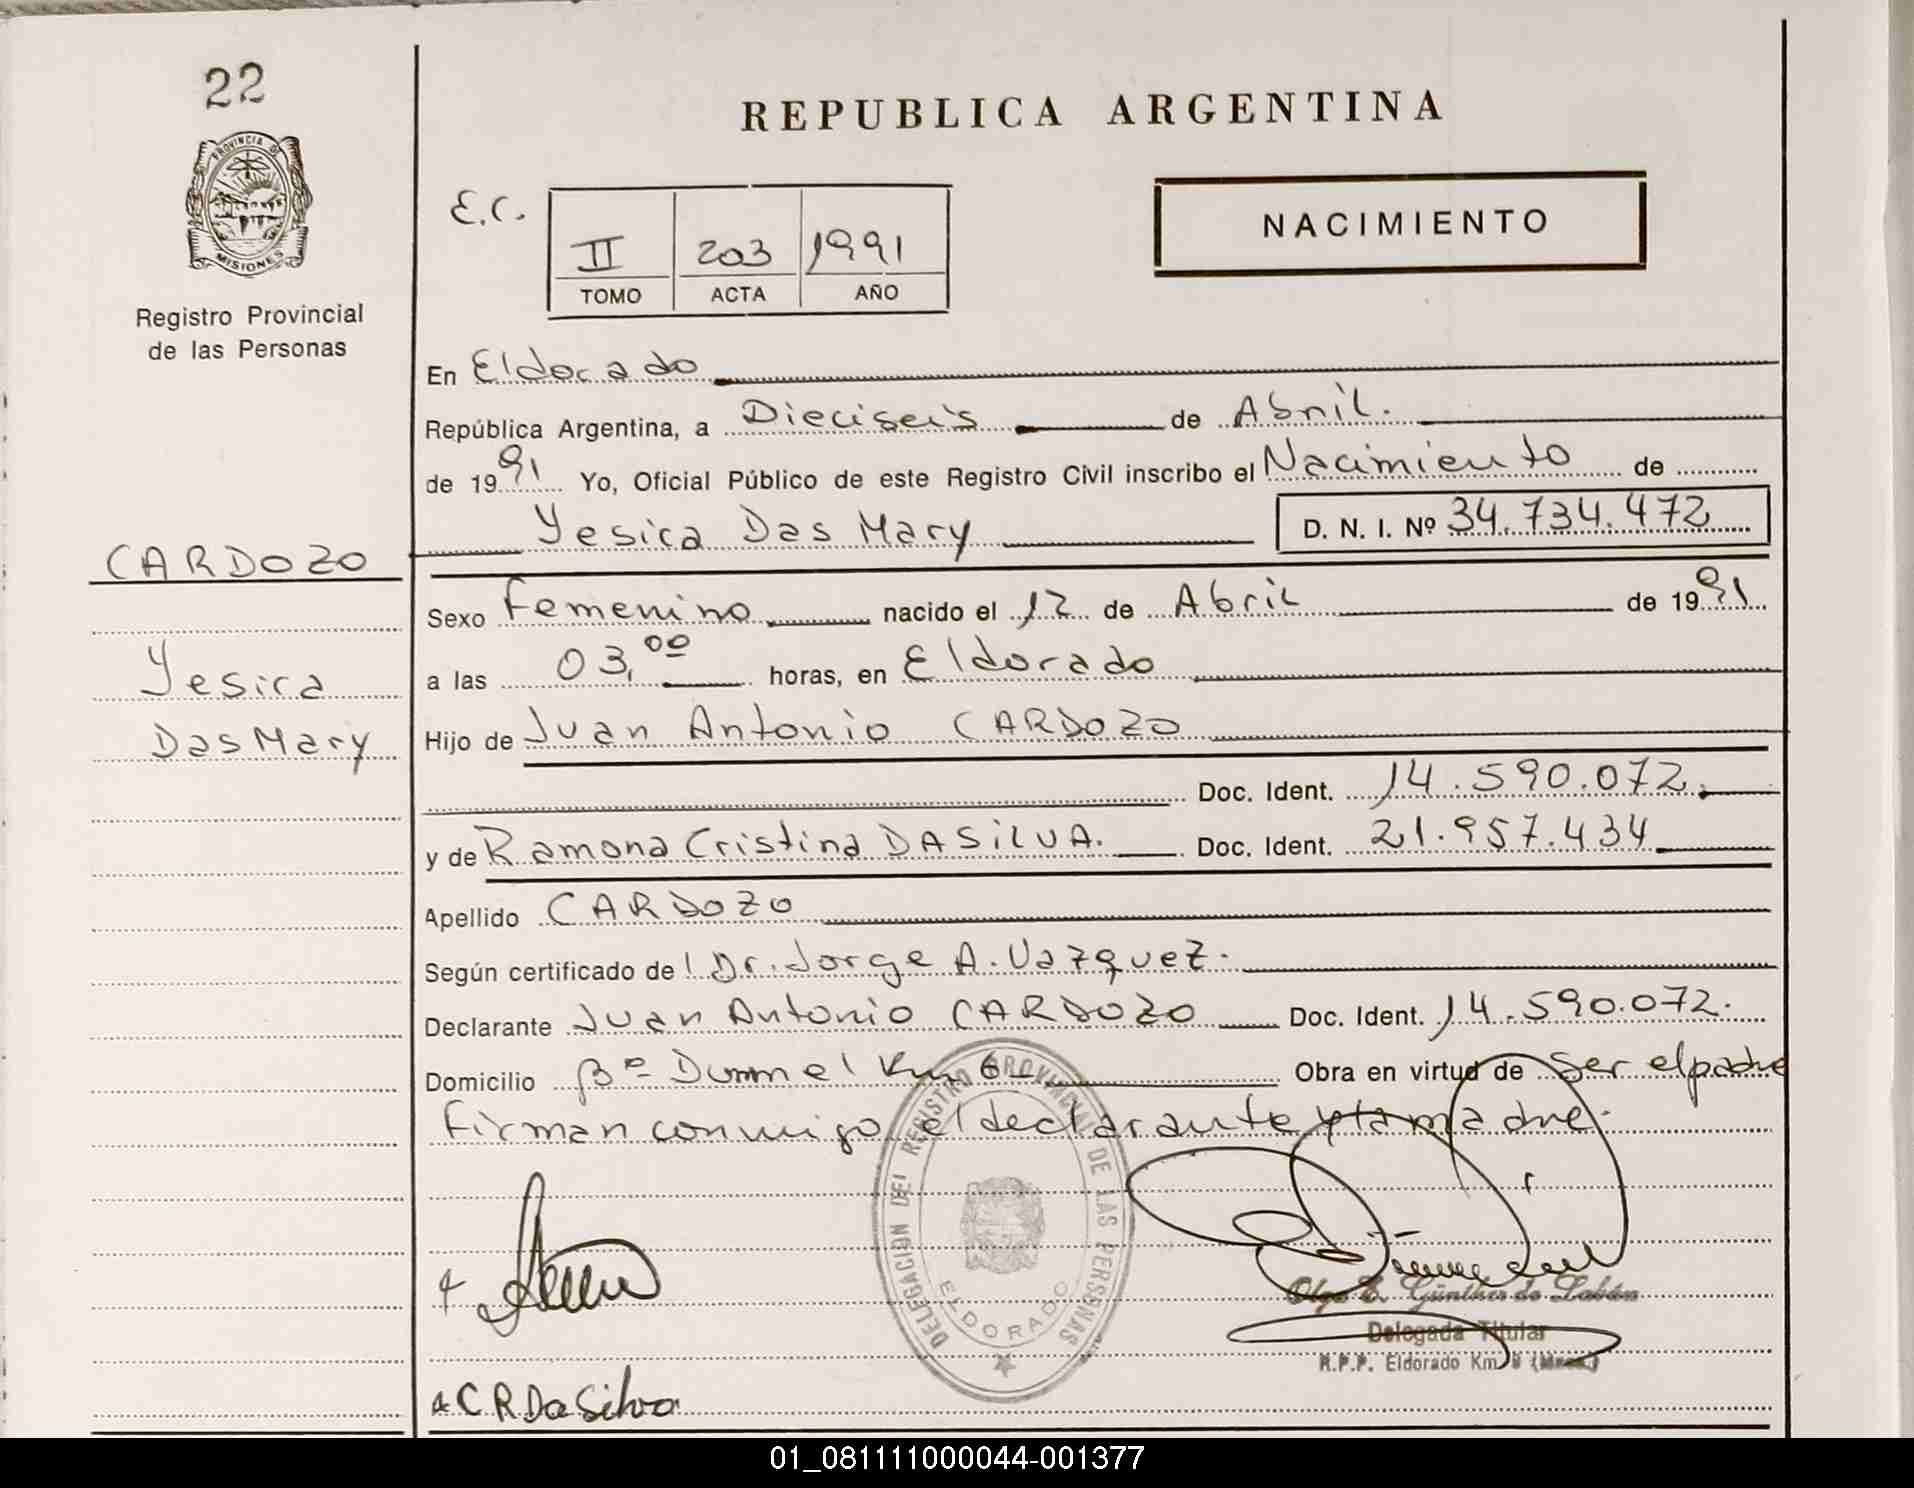 22
PROVINCIA DE
MISIONES
Registro Provincial
de las Personas
CARDOZO
Yesica
Das Mary
REPUBLICA ARGENTINA
E.C.
II 203 1991
TOMO ACTA AÑO
NACIMIENTO
En Eldorado
República Argentina, a Dieciseis de Abril.
de 1991 Yo, Oficial Público de este Registro Civil inscribo el Nacimiento de
Yesica Das Mary D. N. I. Nº 34.734.472
Sexo Femenino nacido el 12 de Abril de 1991
a las 03,00 horas, en Eldorado
Hijo de Juan Antonio CARDOZO
Doc. Ident. 14.590.072.
y de Ramona Cristina DA SILVA. Doc. Ident. 21.957.434
Apellido CARDOZO
Según certificado del Dr. Jorge A. Vazquez.
Declarante Juan Antonio CARDOZO Doc. Ident. 14.590.072.
Domicilio Bº Dummel Km 6 Obra en virtud de ser el padre
Firman conmigo el declarante y la madre.
DELEGACION DEL REGISTRO PROVINCIAL DE LAS PERSONAS
ELDORADO
Olga E. Günther de
Delegada Titular
R.P.P. Eldorado Km.
C R Da Silva
01_081111000044-001377